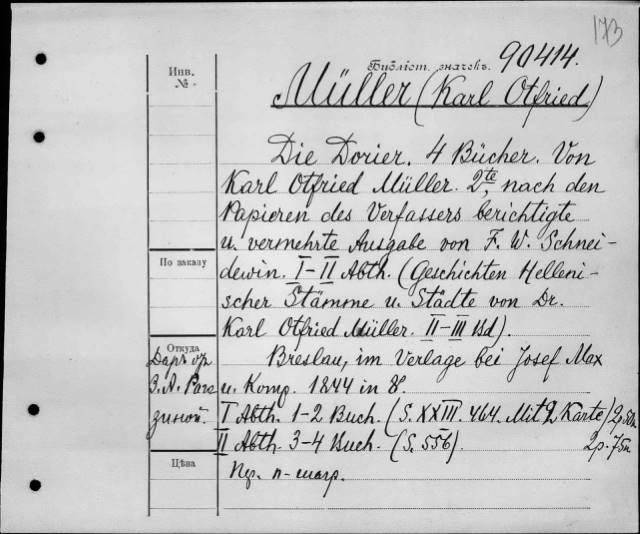 173
Инв.
№
Библіот. значекъ. 90414.
Müller (Karl Otfried)
Die Dorier. 4 Bücher. Von
Karl Otfried Müller. 2te, nach den
Papieren des Verfassers berichtigte
u. vermehrte Ausgabe von F. W. Schnei-
dewin. I-II Abth. (Geschichten Helleni-
scher Stämme u. Städte von Dr.
Karl Otfried Müller. II-III Bd).
По заказу
Откуда
Даръ
З. А. Рага
зиной.
Breslau, im Verlage bei Josef Max
u. Komp. 1844 in 8°.
I Abth. 1-2 Buch. (S. XXIII. 464. Mit 2 Karte)
II Abth. 3-4 Buch. (S. 556). 2р. 75к
Цѣна